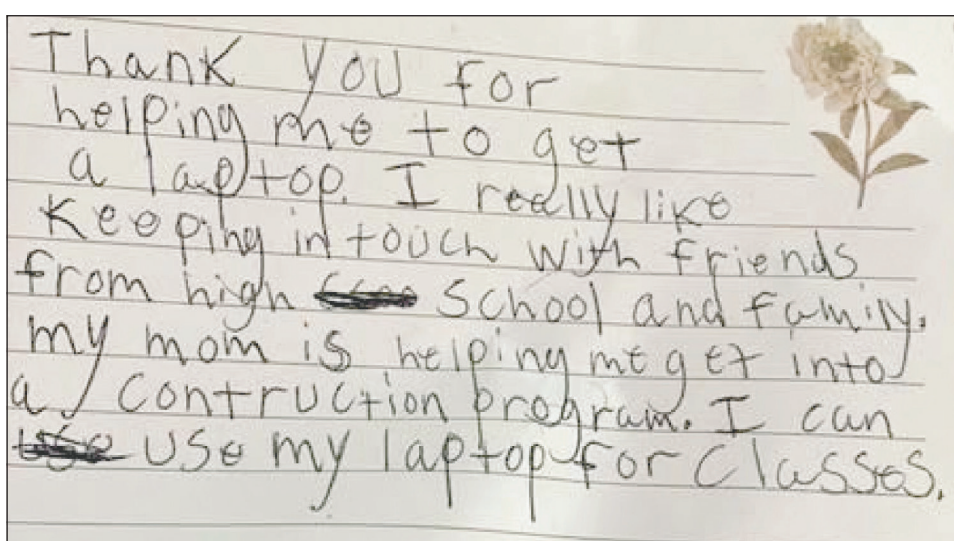 Thank you for
helping me to get
a laptop. I really like
Keeping in touch with friends
from high School and family.
my mom is helping me get into
a contruction program. I can
use my laptop for classes.